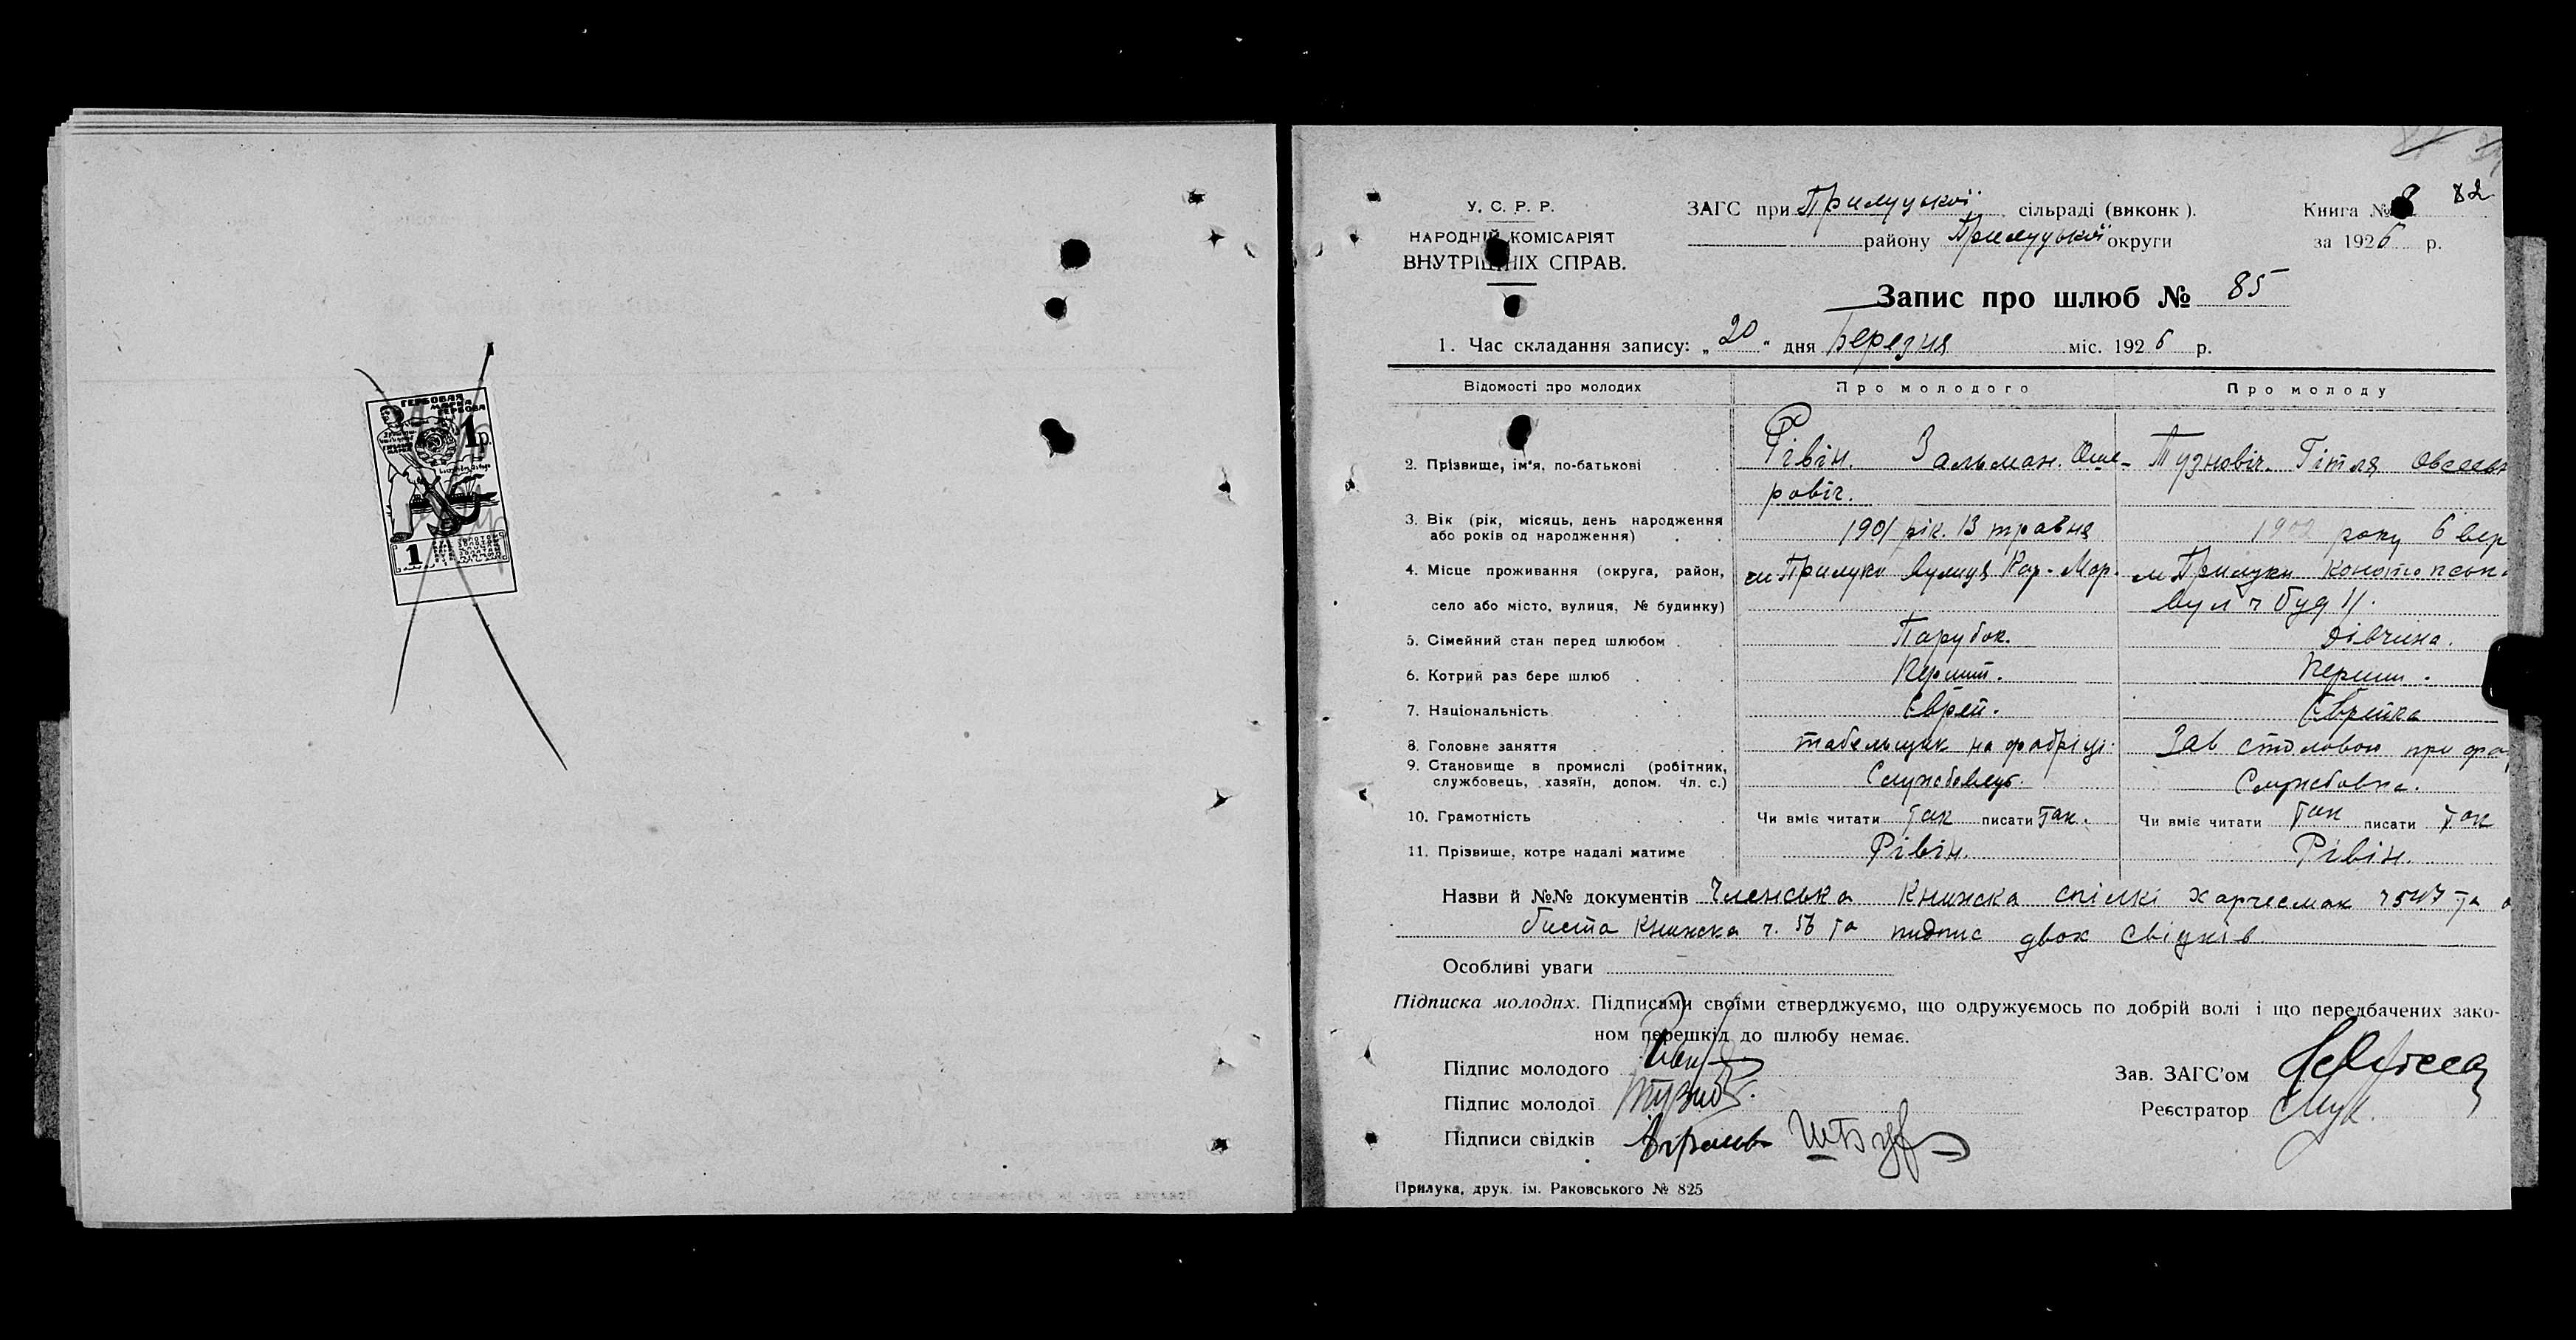 ГЕРБОВАЯ
МАРКА
ГЕРБОВА
1 р.
1
82
У. С. Р. Р.
НАРОДНІЙ КОМІСАРІЯТ
ВНУТРІШНІХ СПРАВ.
ЗАГС при Прилуцької сільраді (виконк ).
району Прилуцької округи
Книга №
за 1926 р.
Запис про шлюб № 85
1. Час складання запису: „20" дня Березня міс. 1926 р.
Відомості про молодих Про молодого Про молоду
2. Прізвище, ім'я, по-батькові Рівін. Зальман. Оше- Тузновіч. Гітля Овсеев
ровіч.
3. Вік (рік, місяць, день народження
або років од народження) 1901 рік. 13 травня 1902 року 6 вер
4. Місце проживання (округа, район, м Прилуки вулиця Кар-Мар. м Прилуки Конотопськ
село або місто, вулиця, № будинку) вул ч буд 11.
5. Сімейний стан перед шлюбом Парубок. Дівчина.
6. Котрий раз бере шлюб Перший. Перший.
7. Національність Єврей. Єврейка
8. Головне заняття табельщик на фабріці. Зав столовою при фа
9. Становище в промислі (робітник,
службовець, хазяїн, допом. чл. с.) Службовець. Службовка.
10. Грамотність Чи вміє читати так писати так. Чи вміє читати так писати так
11. Прізвище, котре надалі матиме Рівін. Рівін.
Назви й №№ документів Членська Книжка спілкі харчесмак та о
биста Книжка ч. 56 та підпис двох свідків
Особливі уваги
Підписка молодих. Підписами своїми стверджуємо, що одружуємось по добрій волі і що передбачених зако-
ном перешкід до шлюбу немає.
Підпис молодого
Підпис молодої
Підписи свідків
Зав. ЗАГС'ом
Реєстратор
Прилука, друк. ім. Раковського № 825